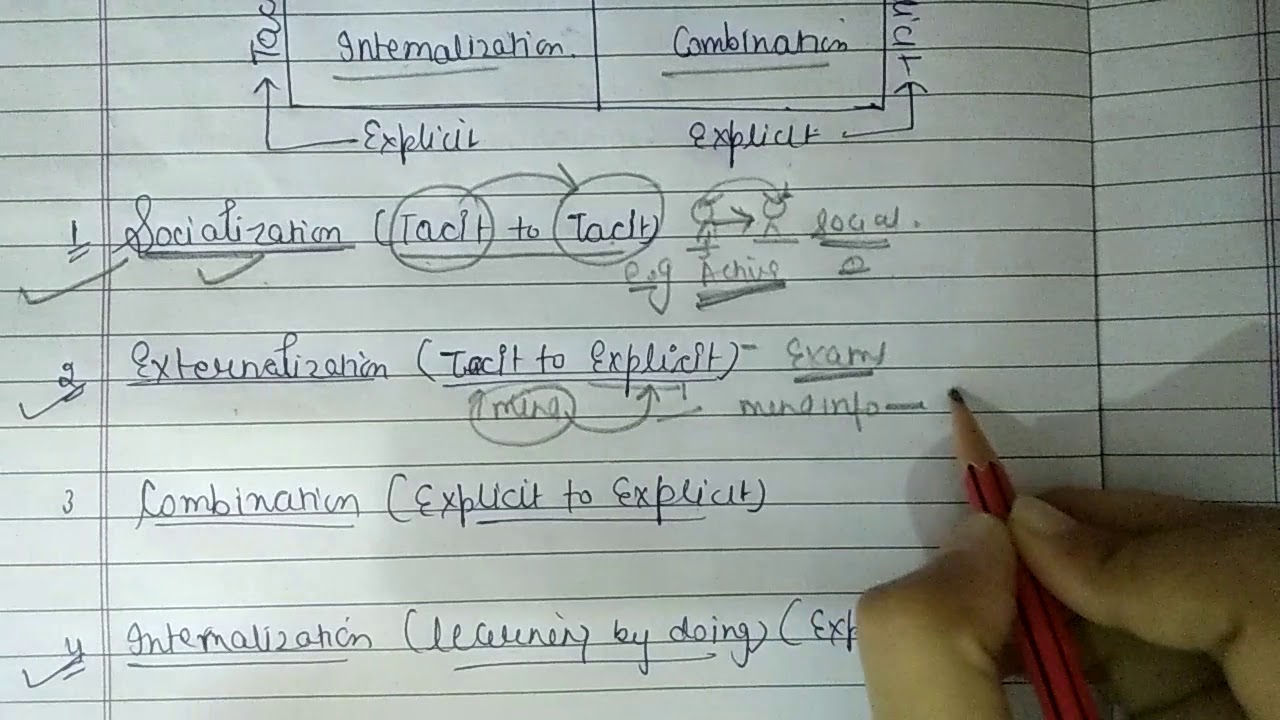 Internalization. Combination
Explicit Explicit
1 Socialization (Tacit to Tacit) Social.
e.g Active
2 Externalization (Tacit to Explicit) - Exam
mind info —
3 Combination (Explicit to Explicit)
4 Internalization (learning by doing) (Exp